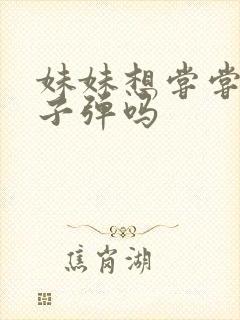 妹妹想尝尝
子弹吗
焦岗湖